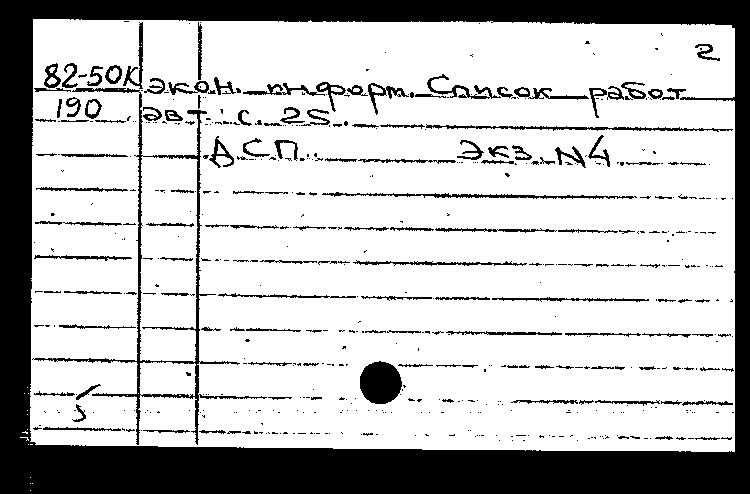 2
82-50К экон. информ. Список работ
190 авт: с. 25.
ДСП. Экз. N4.
5